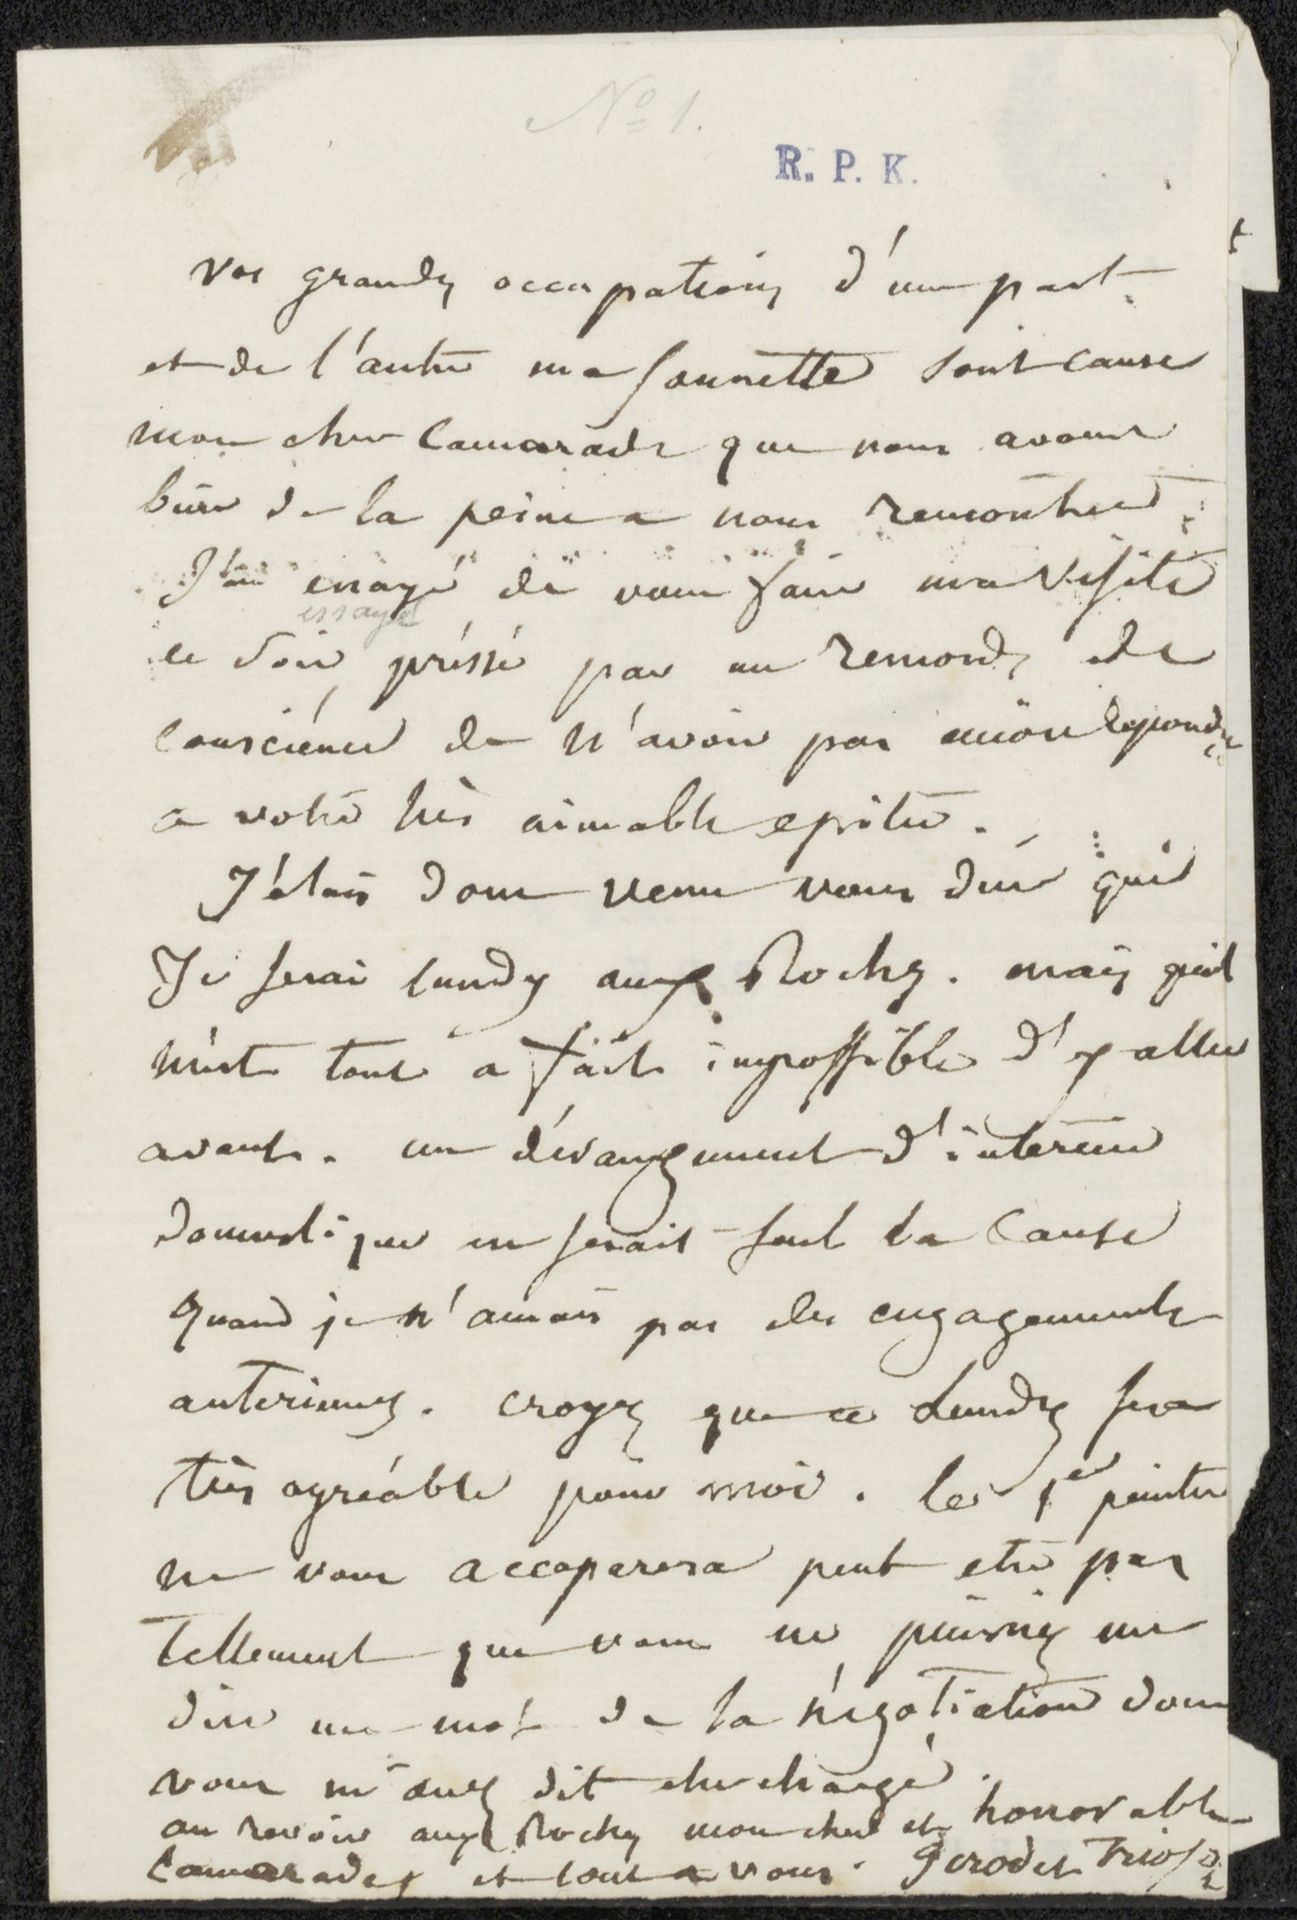 No 1.
R. P. K.
Vos grandes occupations d'une part
et de l'autre ma sonnette sont cause
mon cher Camarade que nous avons
bien de la peine a nous rencontrer.
J'ai essayé de vous faire ma visite
essayé
ce soir préssé par un remords de
conscience de n'avoir pas encore repondu
a votre très aimable epitre.
J'étais donc venu vous dire que
Je serai lundy aux Roches. mais qu'il
m'est tout a fait impossible d'y aller
avant. un dérangement d'interieur
domestique en serait seul la cause
quand je n'aurais pas des engagements
anterieurs. croyez que ce Lundy sera
très agréable pour moi. le 1er peintre
ne vous accaparera peut etre pas
tellement que vous ne puissiez me
dire un mot de la négotiation dont
vous m'avez dit etre chargé.
au revoir aux Roches mon cher et honorable
Camarade et tout a vous. Girodet Trioson